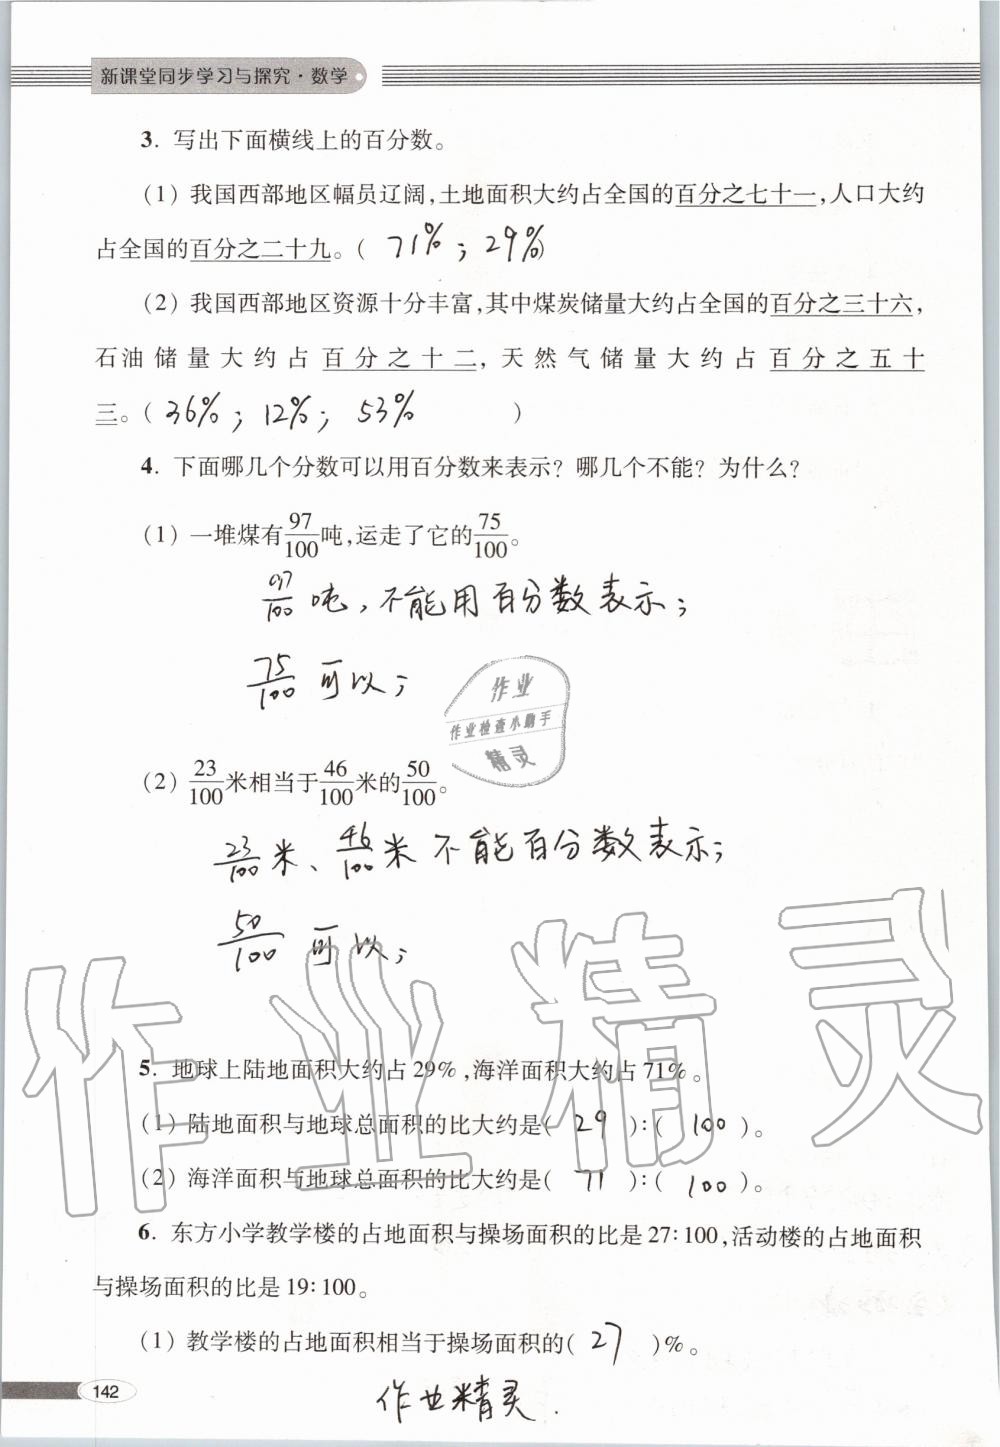 新课堂同步学习与探究·数学
3. 写出下面横线上的百分数。
(1) 我国西部地区幅员辽阔,土地面积大约占全国的百分之七十一,人口大约
占全国的百分之二十九。( 71% ; 29% )
(2) 我国西部地区资源十分丰富,其中煤炭储量大约占全国的百分之三十六,
石油储量大约占百分之十二,天然气储量大约占百分之五十
三。( 36% ; 12% ; 53% )
4. 下面哪几个分数可以用百分数来表示? 哪几个不能? 为什么?
(1) 一堆煤有97/100吨,运走了它的75/100。
97/100 吨,不能用百分数表示;
75/100 可以;
作业
作业检查小助手
精灵
(2) 23/100米相当于46/100米的50/100。
23/100米、46/100米不能百分数表示;
50/100 可以;
作业精灵
5. 地球上陆地面积大约占29%,海洋面积大约占71%。
(1) 陆地面积与地球总面积的比大约是( 29 ):( 100 )。
(2) 海洋面积与地球总面积的比大约是( 71 ):( 100 )。
6. 东方小学教学楼的占地面积与操场面积的比是27:100,活动楼的占地面积
与操场面积的比是19:100。
(1) 教学楼的占地面积相当于操场面积的( 27 )%。
142
作业精灵.